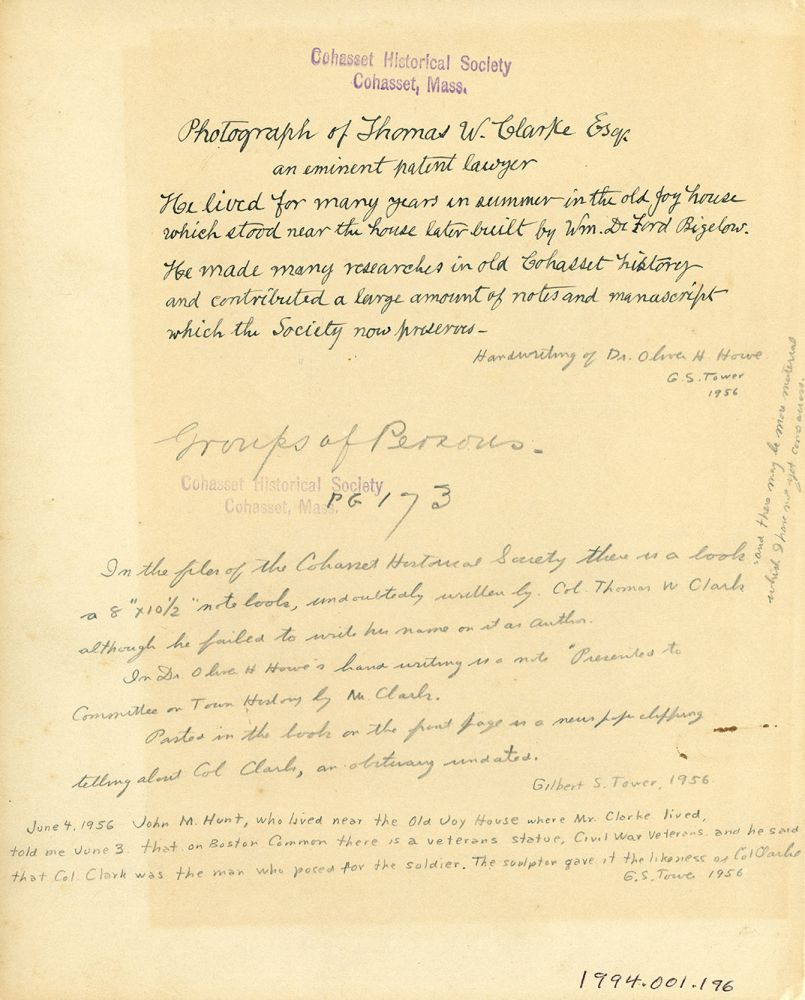 Cohasset Historical Society
Cohasset, Mass.
Photograph of Thomas W. Clarke Esq.
an eminent patent lawyer
He lived for many years in summer in the old Joy house
which stood near the house later built by Wm. De Ford Bigelow.
He made many researches in old Cohasset history
and contributed a large amount of notes and manuscript
which the Society now preserves -
Handwriting of Dr. Oliver H. Howe
G.S. Tower
1956
and there may be more material
which I have not yet come across.
Groups of Persons.
Cohasset Historical Society
Cohasset, Mass.
PG 173
In the files of the Cohasset Historical Society there is a book
a 8" x 10 1/2" note book, undoubtedly written by Col. Thomas W Clark
although he failed to write his name on it as author.
In Dr. Oliver H Howe's hand writing is a note "Presented to
Committee on Town History by Mr. Clark.
Pasted in the book on the front page is a news pape clipping
telling about Col Clark, an obituary undated.
Gilbert S. Tower, 1956
June 4, 1956 John M. Hunt, who lived near the Old Joy House where Mr. Clarke lived,
told me June 3. that on Boston Common there is a veterans statue, Civil War Veterans and he said
that Col. Clark was the man who posed for the soldier. The sculptor gave it the likeness of Col Clarke
G.S. Tower 1956
1994.001.196